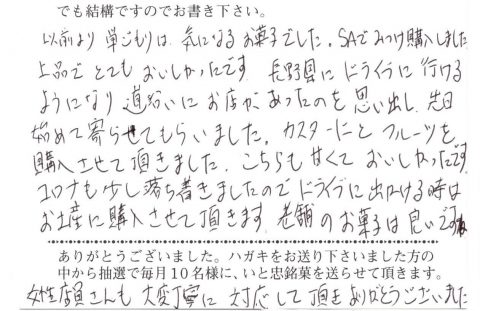 でも結構ですのでお書き下さい。
以前より 巣ごもりは 気になるお菓子でした。SAでみつけ購入しました
上品で とても おいしかったです 長野県に ドライブに 行ける
ようになり 道沿いに お店が あったのを 思い出し 先日
始めて寄らせてもらいました。カスタードと フルーツを
購入させて頂きました。こちらも 甘くて おいしかったです
コロナも少し落ち着きましたので ドライブに 出かける時は
お土産に購入させて頂きます 老舗のお菓子は良いですね
ありがとうございました。ハガキをお送り下さいました方の
中から抽選で毎月10名様に、いと忠銘菓を送らせて頂きます。
女性店員さんも 大変丁寧に 対応して 頂き ありがとうございました